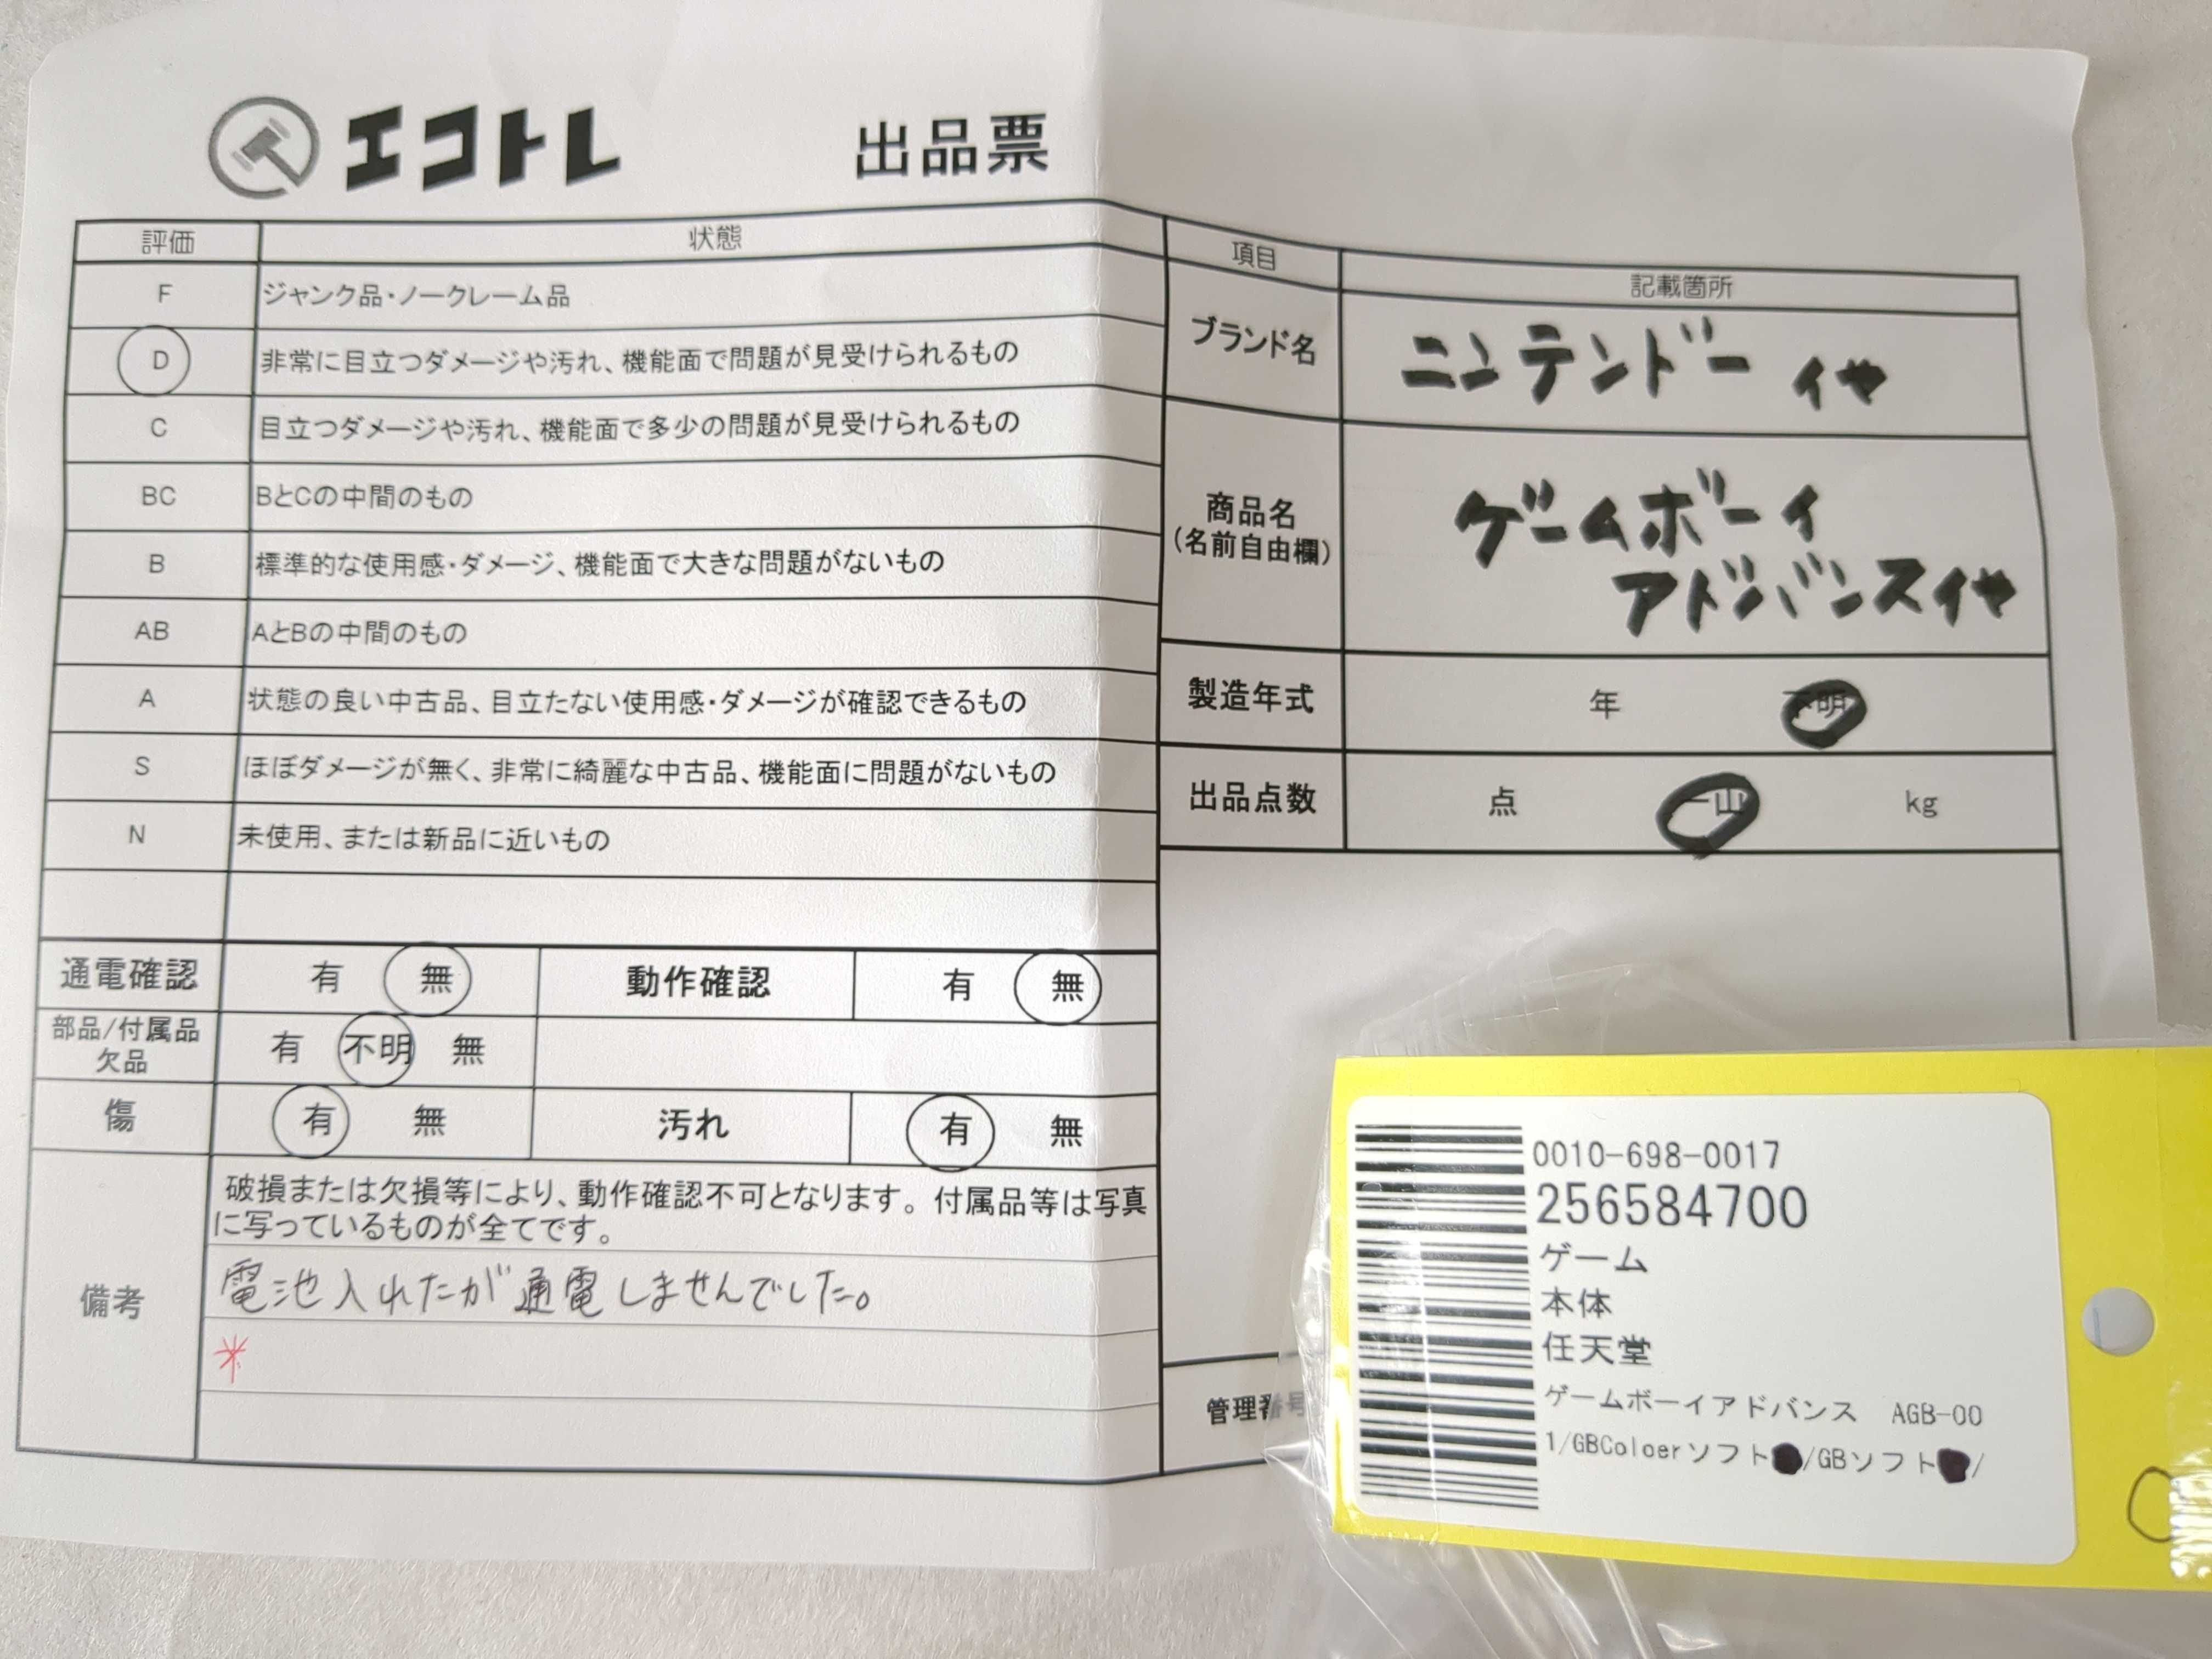 エコトレ 出品票
評価 状態
F ジャンク品・ノークレーム品
D 非常に目立つダメージや汚れ、機能面で問題が見受けられるもの
C 目立つダメージや汚れ、機能面で多少の問題が見受けられるもの
BC BとCの中間のもの
B 標準的な使用感・ダメージ、機能面で大きな問題がないもの
AB AとBの中間のもの
A 状態の良い中古品、目立たない使用感・ダメージが確認できるもの
S ほぼダメージが無く、非常に綺麗な中古品、機能面に問題がないもの
N 未使用、または新品に近いもの
通電確認 有 無 動作確認 有 無
部品/付属品
欠品 有 不明 無
傷 有 無 汚れ 有 無
備考
破損または欠損等により、動作確認不可となります。付属品等は写真
に写っているものが全てです。
電池入れたが通電しませんでした。
*
項目 記載箇所
ブランド名 ニンテンドー 仆
商品名
(名前自由欄)
ゲームボーイ
アドバンス仆
製造年式 年 不明
出品点数 点 一山 kg
管理番号
0010-698-0017
256584700
ゲーム
本体
任天堂
ゲームボーイアドバンス AGB-00
1/GBColoerソフト/GBソフト/